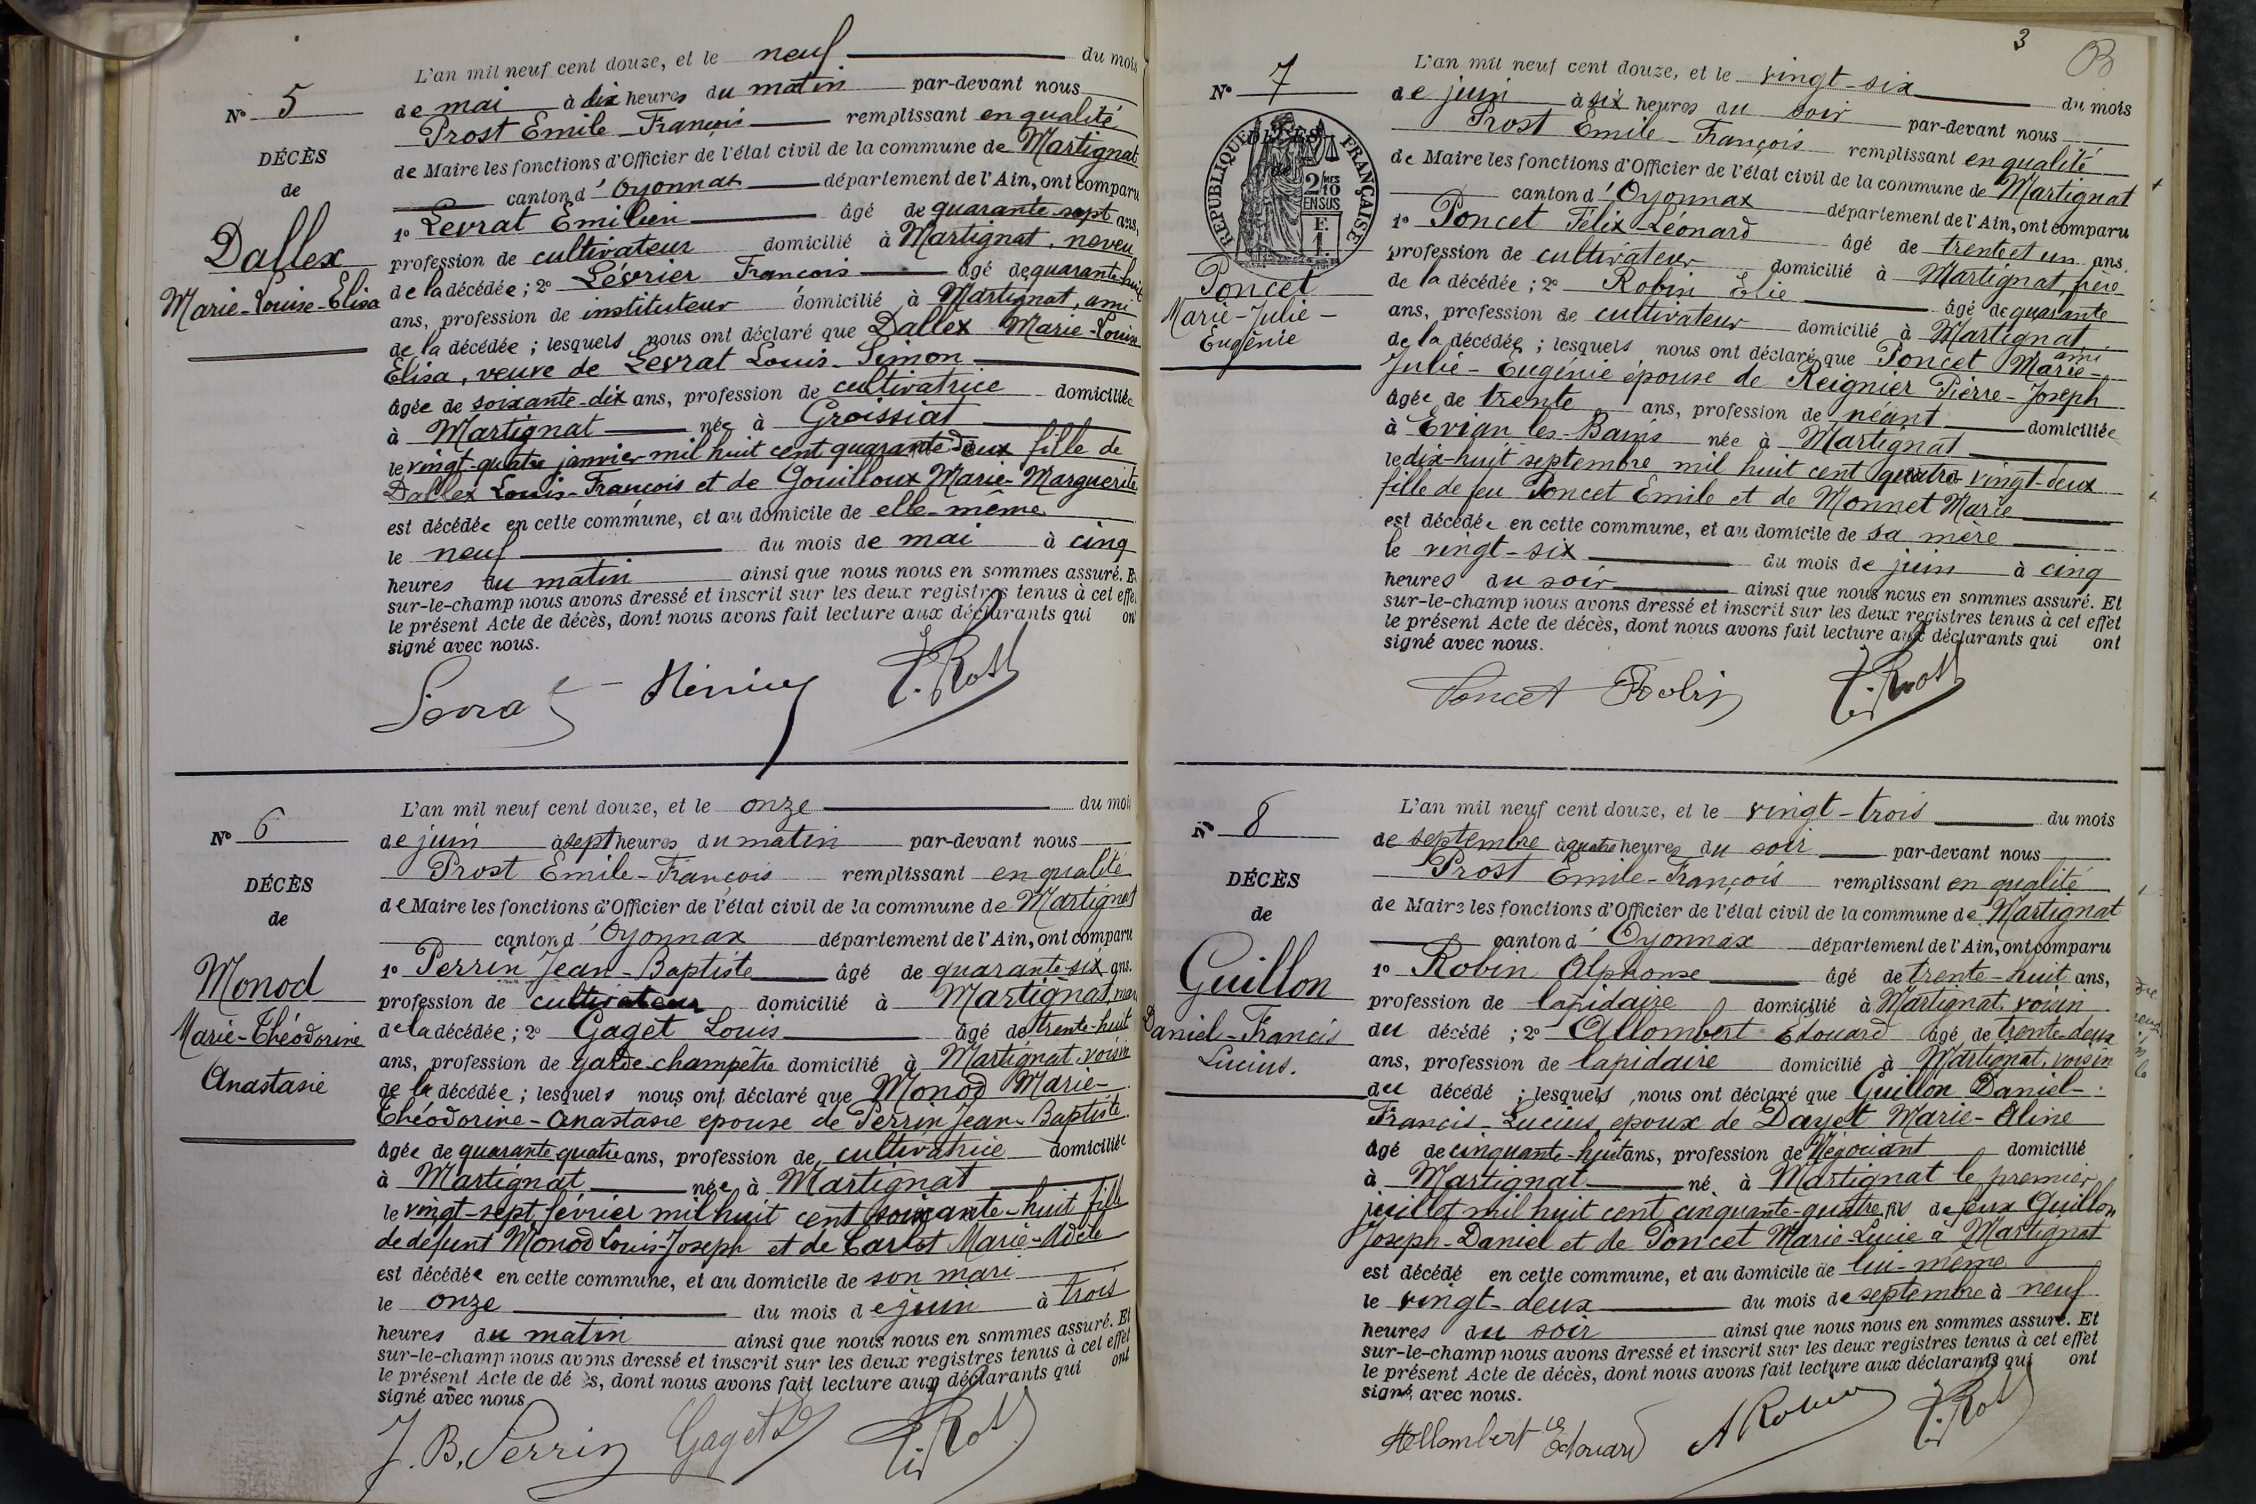 L'an mil neuf cent douze, et le neuf du mois
N° 5
de mai à dix heures du matin par-devant nous
Prost Emile-François remplissant en qualité
DÉCÈS
de Maire les fonctions d'Officier de l'état civil de la commune de Martignat
de
canton d'Oyonnax département de l'Ain, ont comparu
1° Levrat Emilien âgé de quarante-sept ans,
Dallex
profession de cultivateur domicilié à Martignat, neveu
Marie-Louise-Elisa
de la décédée ; 2° Lévrier François âgé de quarante-huit
ans, profession de instituteur domicilié à Martignat, ami
de la décédée ; lesquels nous ont déclaré que Dallex Marie-Louise
Elisa, veuve de Levrat Louis-Simon
âgée de soixante-dix ans, profession de cultivatrice domiciliée
à Martignat née à Groissiat
le vingt-quatre janvier mil huit cent quarante-deux fille de
Dallex Louis-François et de Gouilloux Marie-Marguerite
est décédée en cette commune, et au domicile de elle-même
le neuf du mois de mai à cinq
heures du matin ainsi que nous nous en sommes assuré. E
sur-le-champ nous avons dressé et inscrit sur les deux registres tenus à cet effe
le présent Acte de décès, dont nous avons fait lecture aux déclarants qui on
signé avec nous.
Levrat
L'an mil neuf cent douze, et le onze du moi
N° 6
de juin à sept heures du matin par-devant nous
Prost Emile-François remplissant en qualité
DÉCÈS
de Maire les fonctions d'Officier de l'état civil de la commune de Martignat
de
canton d'Oyonnax département de l'Ain, ont comparu
Monod
1° Perrin Jean-Baptiste âgé de quarante-six ans.
profession de cultivateur domicilié à Martignat, mari
Marie-Théodorine
de la décédée ; 2° Gaget Louis âgé de trente-huit
Anastasie
ans, profession de garde-champêtre domicilié à Martignat, voisin
de la décédée ; lesquels nous ont déclaré que Monod Marie-
Théodorine-Anastasie epouse de Perrin Jean-Baptiste
âgée de quarante-quatre ans, profession de cultivatrice domiciliée
à Martignat née à Martignat
le vingt-sept février mil huit cent soixante-huit fille
de défunt Monod Louis-Joseph et de Carlot Marie-Adèle
est décédée en cette commune, et au domicile de son mari
le onze du mois de juin à trois
heures du matin ainsi que nous nous en sommes assuré. Et
sur-le-champ nous avons dressé et inscrit sur les deux registres tenus à cet effet
le présent Acte de dé s, dont nous avons fait lecture aux déclarants qui ont
signé avec nous
J. B. Perrin Gaget
3
L'an mil neuf cent douze, et le vingt-six du mois
N° 7
de juin à six heures du soir par-devant nous
Prost Emile-François remplissant en qualité
DÉCÈS
de
RÉPUBLIQUE FRANÇAISE
2 MES 10 EN SUS
F.
1.
de Maire les fonctions d'Officier de l'état civil de la commune de Martignat
canton d'Oyonnax département de l'Ain, ont comparu
1° Poncet Félix-Léonard âgé de trente et un ans.
profession de cultivateur domicilié à Martignat, frère
Poncet
Marie-Julie-
Eugénie
de la décédée ; 2° Robin Elie âgé de quarante
ans, profession de cultivateur domicilié à Martignat
ami
de la décédée ; lesquels nous ont déclaré que Poncet Marie-
Julie-Eugénie épouse de Reignier Pierre-Joseph
âgée de trente ans, profession de néant domiciliée
à Evian les-Bains née à Martignat
le dix-huit septembre mil huit cent quatre vingt-deux
fille de feu Poncet Emile et de Monnet Marie
est décédée en cette commune, et au domicile de sa mère
le vingt-six du mois de juin à cinq
heures du soir ainsi que nous nous en sommes assuré. Et
sur-le-champ nous avons dressé et inscrit sur les deux registres tenus à cet effet
le présent Acte de décès, dont nous avons fait lecture aux déclarants qui ont
signé avec nous.
Poncet Robin
L'an mil neuf cent douze, et le vingt-trois du mois
N° 8
de septembre à quatre heures du soir par-devant nous
Prost Emile-François remplissant en qualité
DÉCÈS
de Maire les fonctions d'Officier de l'état civil de la commune de Martignat
de
canton d'Oyonnax département de l'Ain, ont comparu
Guillon
1° Robin Alphonse âgé de trente-huit ans,
profession de lapidaire domicilié à Martignat, voisin
Daniel-Francis
Lucius.
du décédé ; 2° Allombert Edouard âgé de trente-deux
ans, profession de lapidaire domicilié à Martignat, voisin
du décédé ; lesquels nous ont déclaré que Guillon Daniel-
Francis-Lucius epoux de Dayet Marie-Eline
âgé de cinquante-huit ans, profession de Négociant domicilié
à Martignat né à Martignat le premier
juillet mil huit cent cinquante-quatre fils de feux Guillon
Joseph-Daniel et de Poncet Marie-Lucie à Martignat
est décédé en cette commune, et au domicile de lui-même
le vingt-deux du mois de septembre à neuf
heures du soir ainsi que nous nous en sommes assuré. Et
sur-le-champ nous avons dressé et inscrit sur les deux registres tenus à cet effet
le présent Acte de décès, dont nous avons fait lecture aux déclarants qui ont
signé avec nous.
Allombert Edouard A Robin